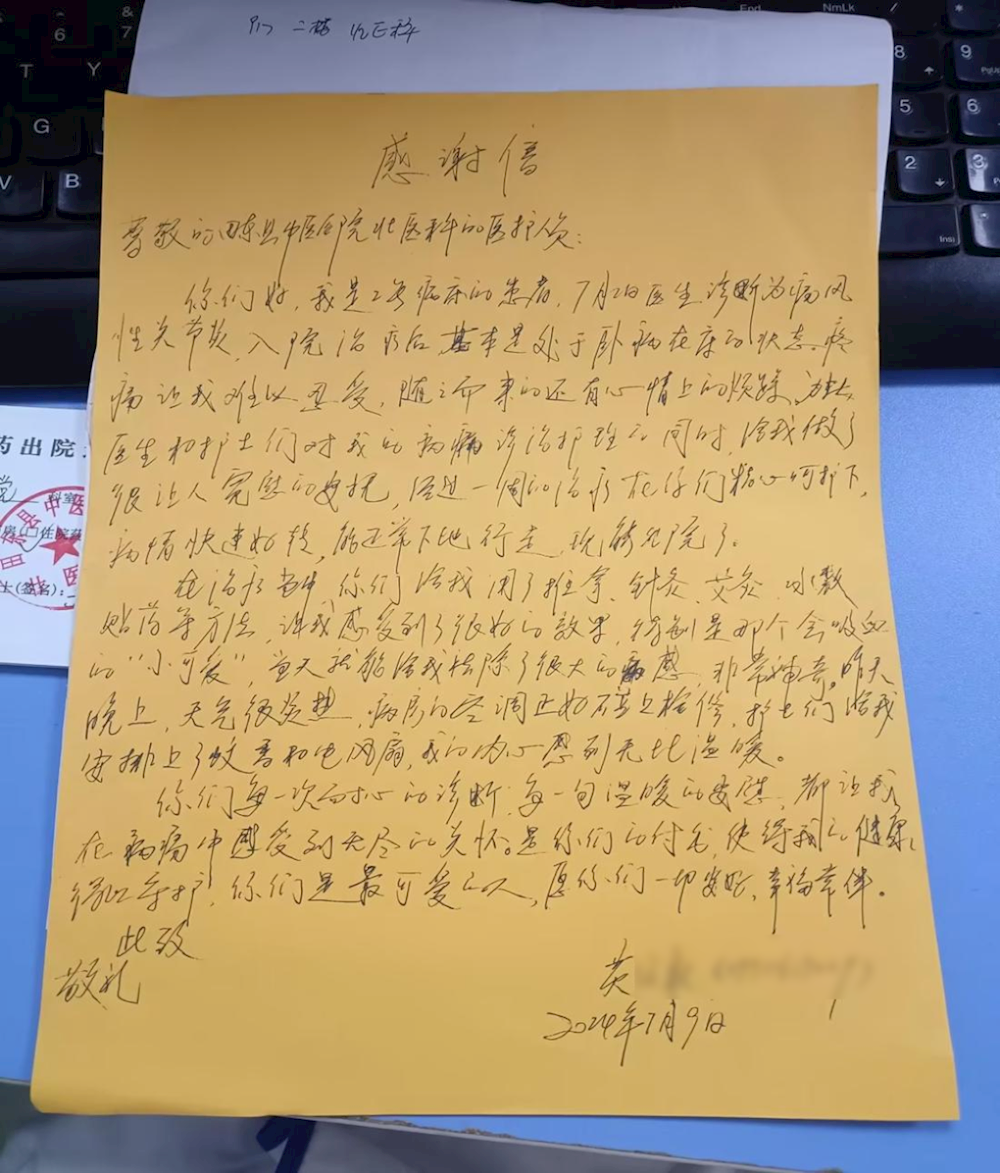 6
&
7
T
Y
G
V
B
End
NmLk
8
9
5
6
2
3
Ins
二楼
感谢信
尊敬的田东县中医医院壮医科的医护人员:
你们好,我是2号病床的患者,7月2日医生诊断为痛风
性关节炎,入院治疗后基本是处于卧病在床的状态。疼
痛让我难以忍受,随之而来的还有心情上的烦躁,
医生和护士们对我的病痛诊治护理的同时,给我做了
很让人宽慰的安抚,经过一周的治疗在你们精心呵护下,
病情快速好转,能正常下地行走,现能出院了。
在治疗当中,你们给我用了推拿、针灸、艾灸、冰敷
贴药等方法,让我感受到了很好的效果,特别是那个会吸血
的“小可爱”,当天就能给我祛除了很大的痛感,非常神奇。昨天
晚上,天气很炎热,病房的空调正好碰上检修,护士们给我
安排上了蚊香和电风扇,我的内心感到无比温暖。
你们每一次的诊断,每一句温暖的安慰,都让我
在病痛中感受到无尽的关怀。是你们的付出,使得我的健康
得以守护,你们是最可爱的人,愿你们一切安好,幸福常伴。
此致
敬礼
黄
2024年7月9日
药出院
院 科室
田东县中医医院
士(签名):